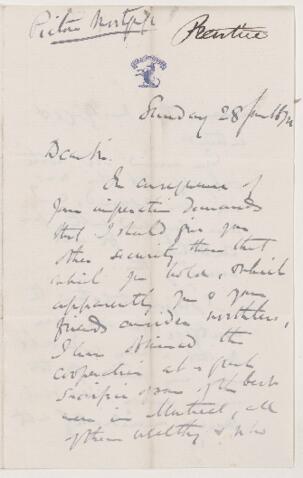 Picture Mortgage
Prentice
Sunday 28 June 1874
Dear Sir
In consequence of
your imperative demands
that I should give you
other security than that
which you hold, & which
apparently you & your
friends consider worthless,
I have obtained the
cooperation at a great
sacrifice of some of the best
men in Montreal, all
of them wealthy & who